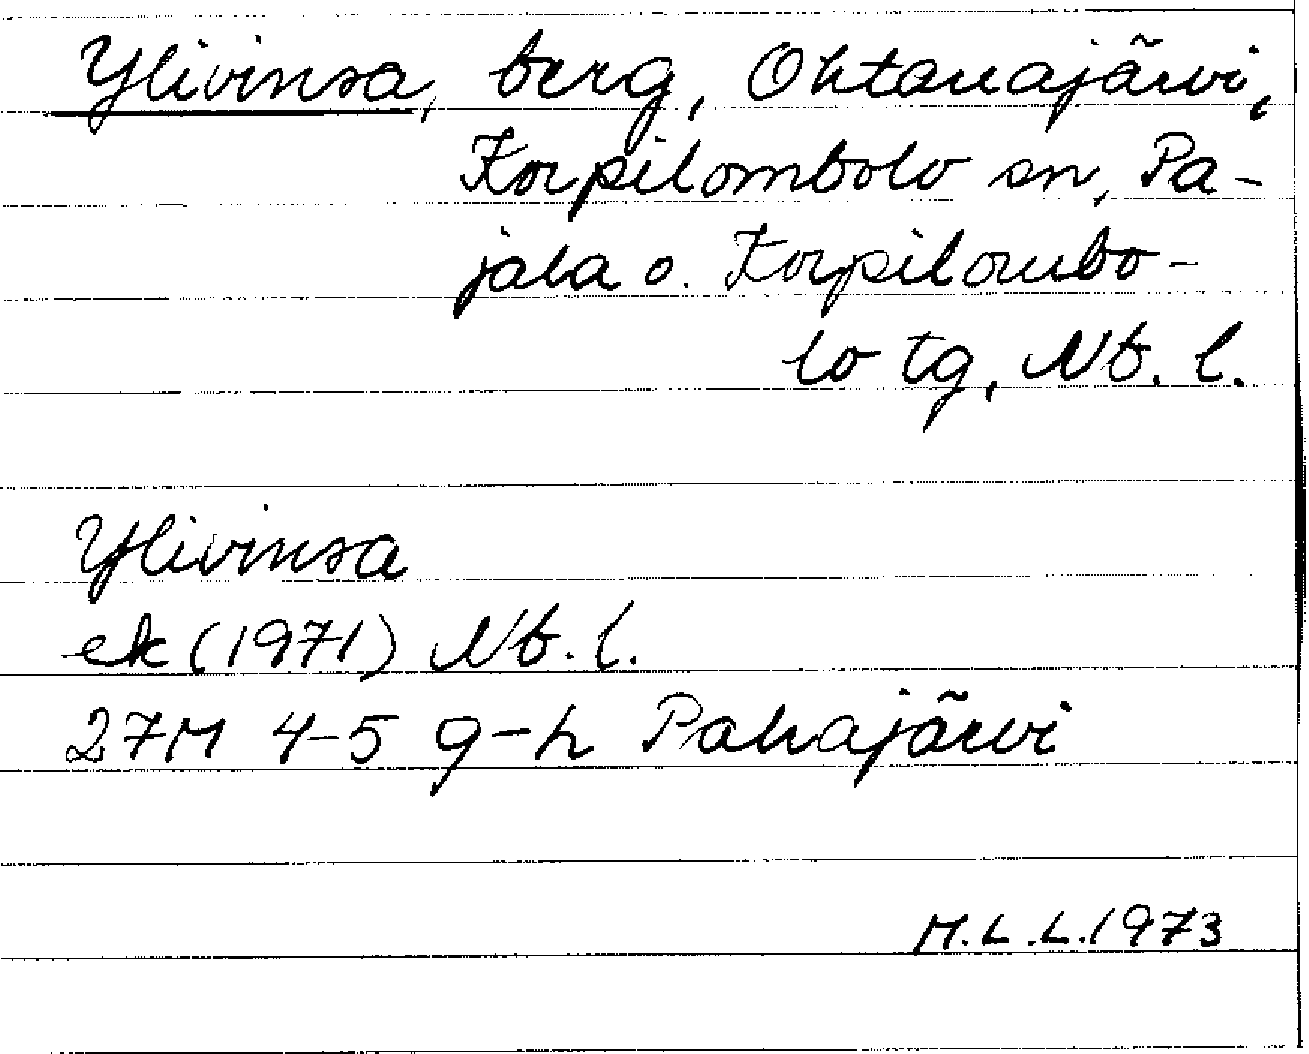 Ylivinsa, berg, Ohtanajärvi,
Korpilombolo sn, Pa-
jala o. Korpilombo-
lo tg, Nb. l.
Ylivinsa
ek (1971) Nb. l.
27M 4-5 g-h Pahajärvi
M.L.L. 1973